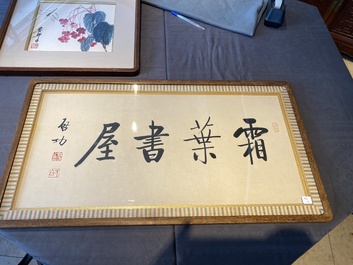 霜葉書屋
啟功